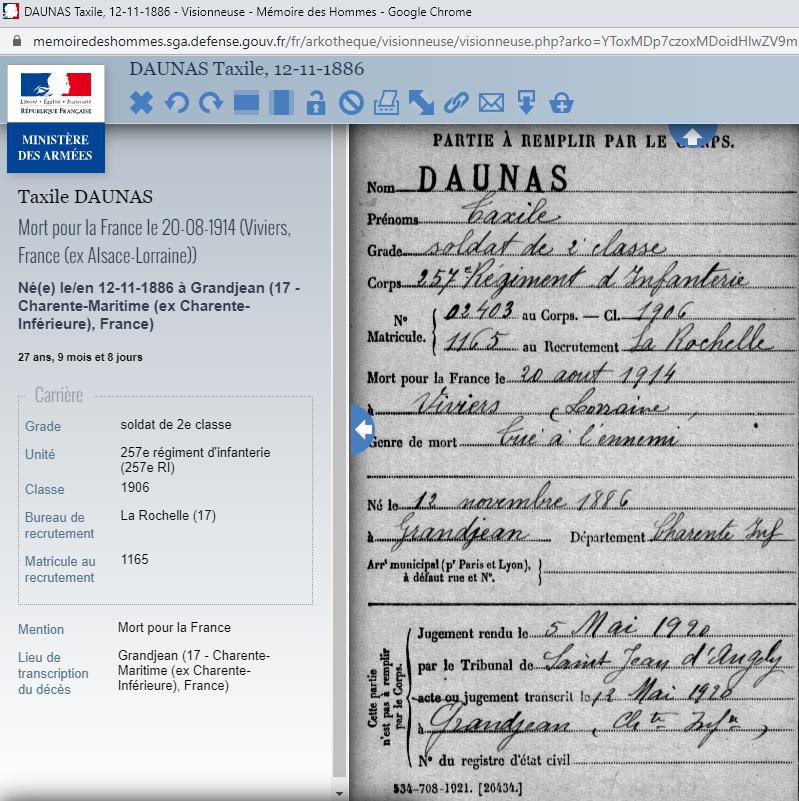 DAUNAS Taxile, 12-11-1886 - Visionneuse - Mémoire des Hommes - Google Chrome
memoiredeshommes.sga.defense.gouv.fr/fr/arkotheque/visionneuse/visionneuse.php?arko=YToxMDp7czoxMDoidHlwZV9m
DAUNAS Taxile, 12-11-1886
Liberté • Égalité • Fraternité
RÉPUBLIQUE FRANÇAISE
MINISTÈRE
DES ARMÉES
Taxile DAUNAS
Mort pour la France le 20-08-1914 (Viviers,
France (ex Alsace-Lorraine))
Né(e) le/en 12-11-1886 à Grandjean (17 -
Charente-Maritime (ex Charente-
Inférieure), France)
27 ans, 9 mois et 8 jours
Carrière
Grade soldat de 2e classe
Unité 257e régiment d'infanterie
(257e RI)
Classe 1906
Bureau de La Rochelle (17)
recrutement
Matricule au 1165
recrutement
Mention Mort pour la France
Lieu de Grandjean (17 - Charente-
transcription Maritime (ex Charente-
du décès Inférieure), France)
PARTIE À REMPLIR PAR LE CORPS.
Nom DAUNAS
Prénoms Taxile
Grade soldat de 2e classe
Corps 257e Régiment d'Infanterie
N° 02403 au Corps. — Cl. 1906
Matricule. 1165 au Recrutement La Rochelle
Mort pour la France le 20 aout 1914
à Viviers (Lorraine)
Genre de mort Tué à l'ennemi
Né le 12 novembre 1886
à Grandjean Département Charente Inf
Arrt municipal (pr Paris et Lyon),
à défaut rue et N°.
Cette partie
n'est pas à remplir
par le Corps.
Jugement rendu le 5 Mai 1920
par le Tribunal de Saint Jean d'Angely
acte ou jugement transcrit le 12 Mai 1920
à Grandjean (Chte Infre)
N° du registre d'état civil
534-708-1921. [26434.]